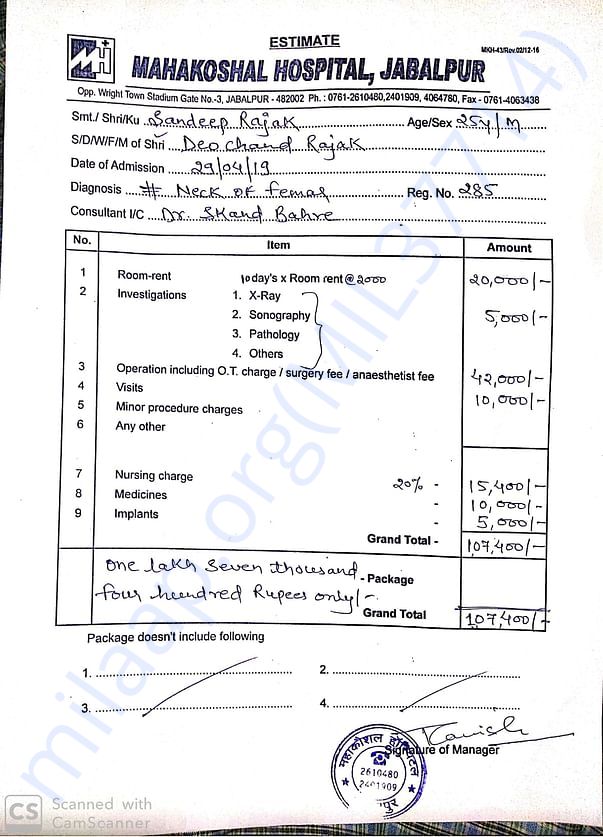 ESTIMATE
MKH-43/Rev.02/12-16
MH
MAHAKOSHAL HOSPITAL, JABALPUR
Opp. Wright Town Stadium Gate No.-3, JABALPUR - 482002 Ph. : 0761-2610480,2401909, 4064780, Fax - 0761-4063438
Smt./ Shri/Ku Sandeep Rajak Age/Sex 25y/M
S/D/W/F/M of Shri Deochand Rajak
Date of Admission 29/04/19
Diagnosis # Neck of femar Reg. No. 285
Consultant I/C Dr. Skand Bahre
No. Item Amount
1 Room-rent 10 day's x Room rent @ 2000 20,000/-
2 Investigations 1. X-Ray
2. Sonography 5,000/-
3. Pathology
4. Others
3 Operation including O.T. charge / surgery fee / anaesthetist fee 42,000/-
4 Visits 10,000/-
5 Minor procedure charges
6 Any other
7 Nursing charge 20% - 15,400/-
8 Medicines - 10,000/-
9 Implants - 5,000/-
Grand Total - 107,400/-
One lakh Seven thousand - Package
four hundred Rupees only/-
Grand Total 107,400/-
Package doesn't include following
1. 2.
3. 4.
Signature of Manager
महाकौशल हॉस्पिटल
2610480
2401909
milaap.org(MIL37714)
CS Scanned with
CamScanner